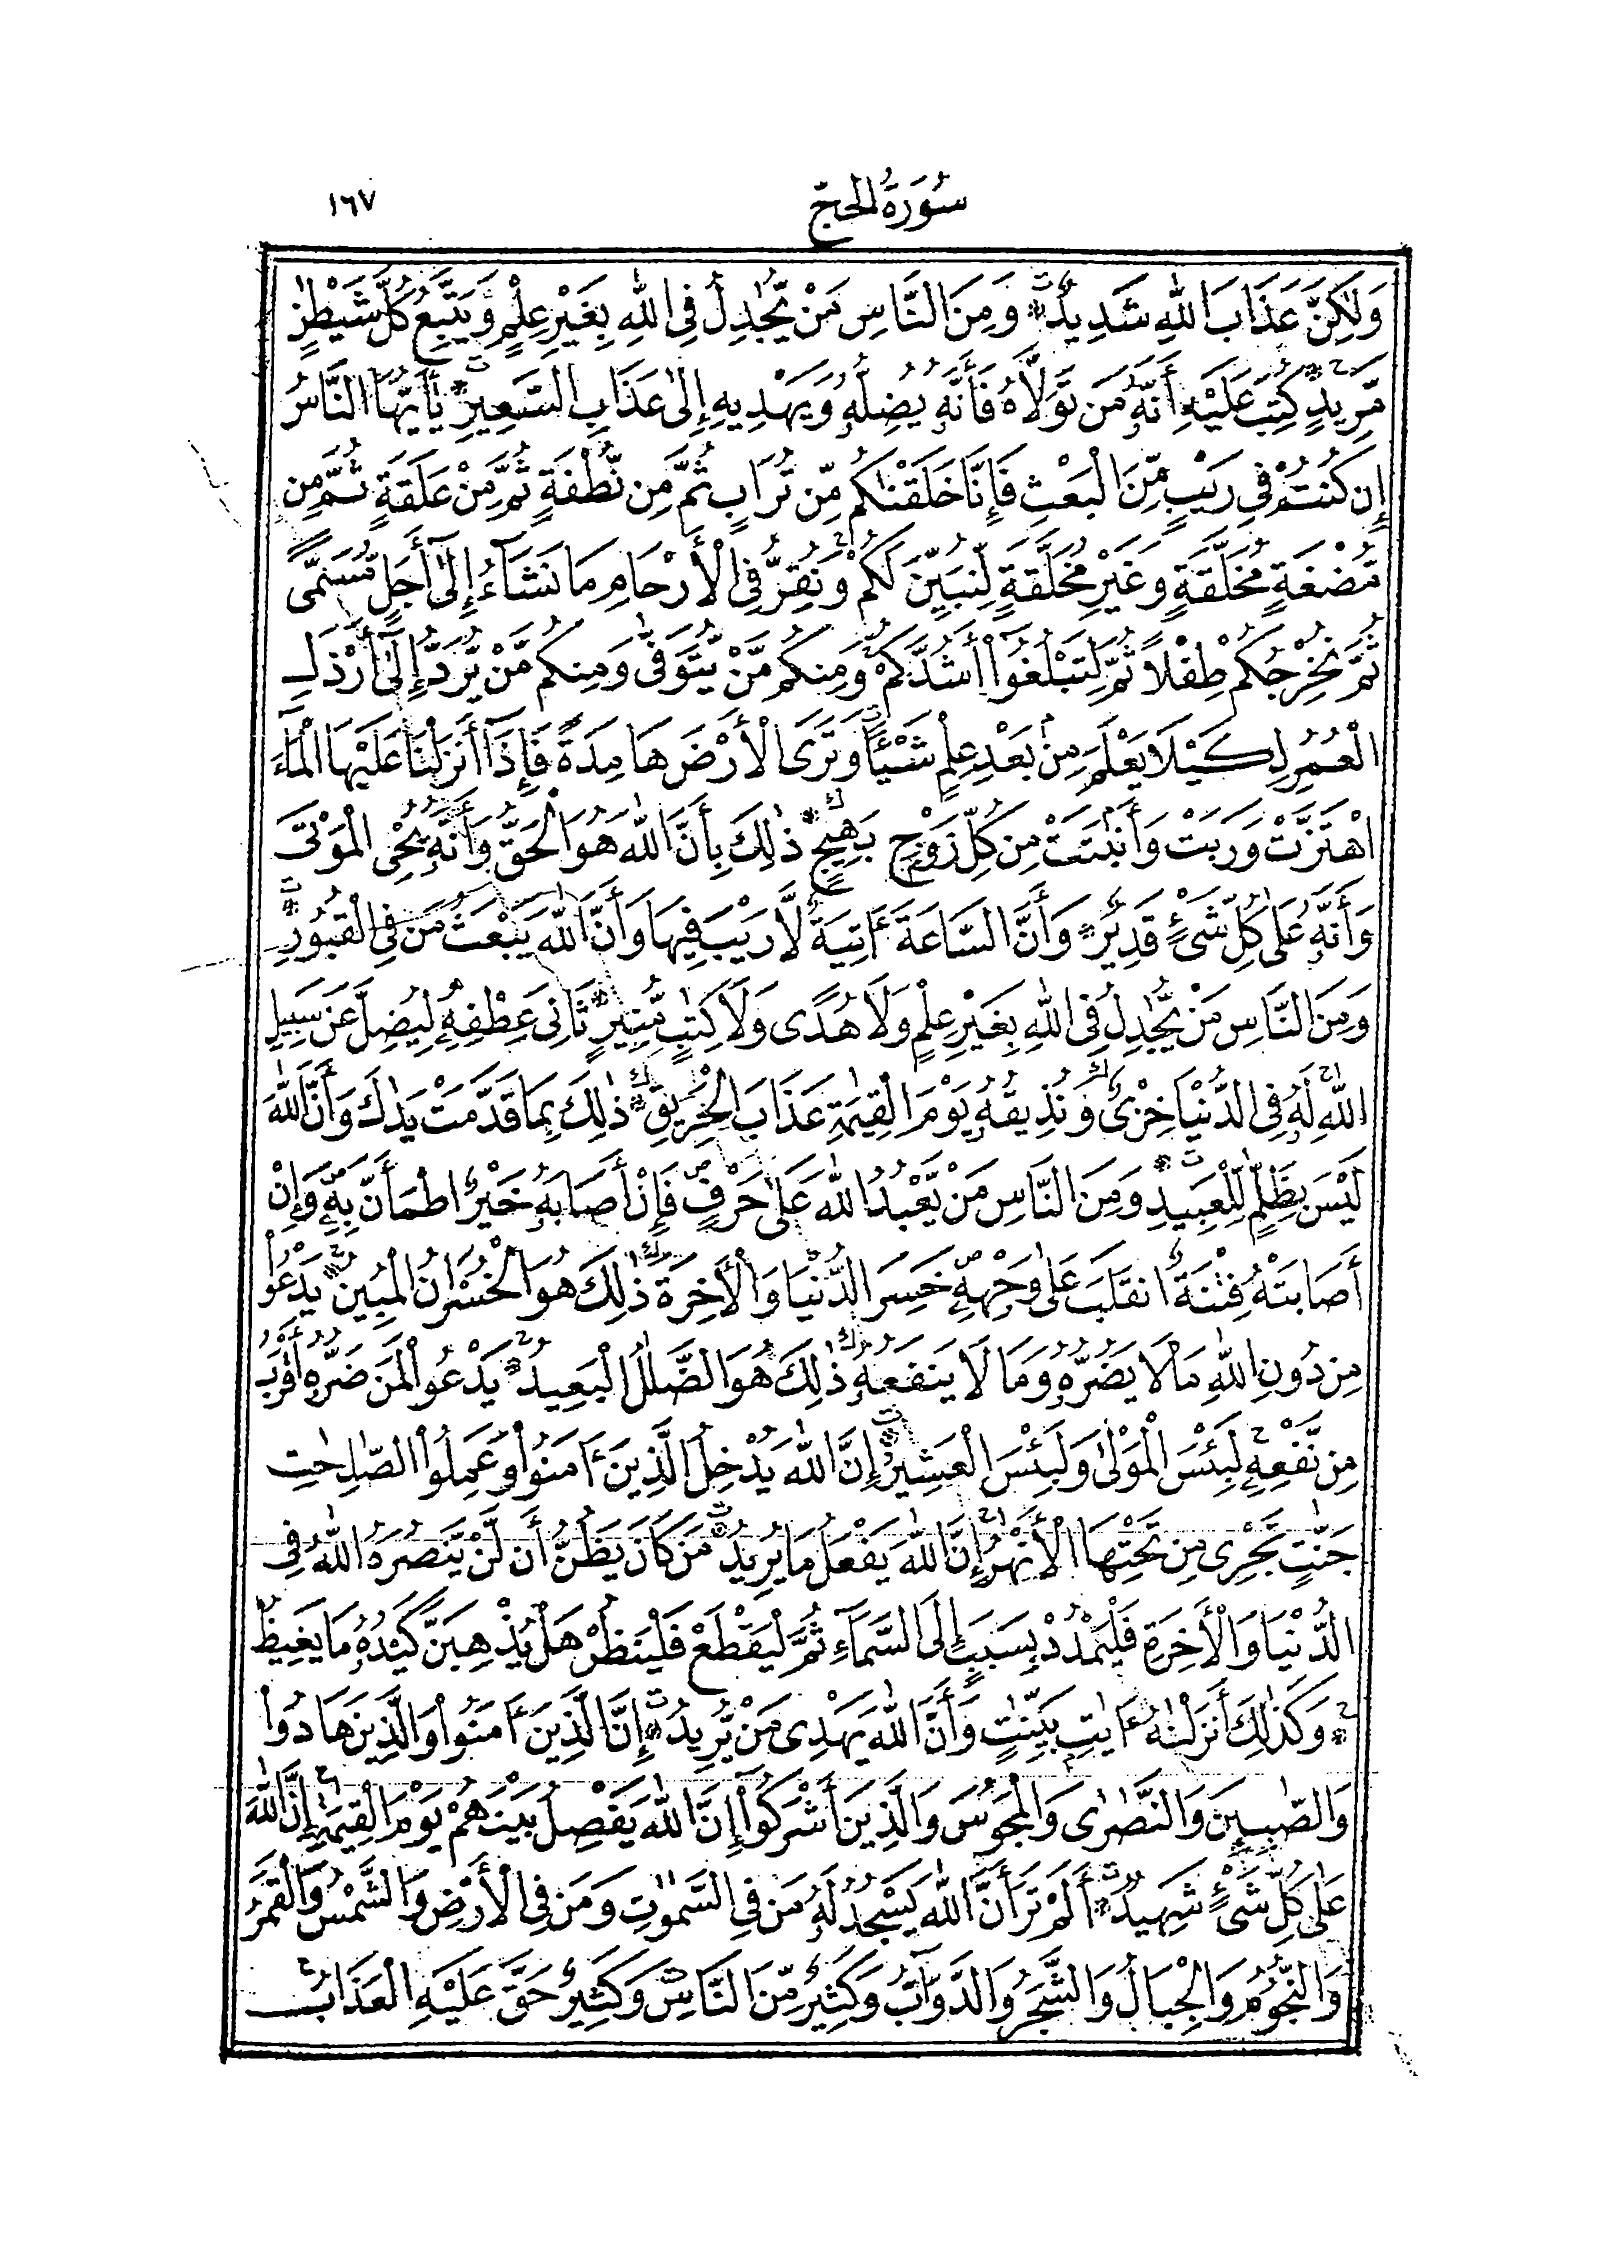 سُورَةُ الْحَجّ ١٦٧
وَلَٰكِنَّ عَذَابَ اللَّهِ شَدِيدٌ وَمِنَ النَّاسِ مَنْ يُّجَٰدِلُ فِى اللَّهِ بِغَيْرِ عِلْمٍ وَّيَتَّبِعُ كُلَّ شَيْطَٰنٍ
مَّرِيدٍ كُتِبَ عَلَيْهِ أَنَّهُ مَن تَوَلَّاهُ فَأَنَّهُ يُضِلُّهُ وَيَهْدِيهِ إِلَىٰ عَذَابِ السَّعِيرِ يَٰأَيُّهَا النَّاسُ
إِن كُنتُمْ فِى رَيْبٍ مِّنَ الْبَعْثِ فَإِنَّا خَلَقْنَٰكُم مِّن تُرَابٍ ثُمَّ مِن نُّطْفَةٍ ثُمَّ مِنْ عَلَقَةٍ ثُمَّ مِن
مُّضْغَةٍ مُّخَلَّقَةٍ وَغَيْرِ مُخَلَّقَةٍ لِّنُبَيِّنَ لَكُمْ وَنُقِرُّ فِى الْأَرْحَامِ مَا نَشَآءُ إِلَىٰٓ أَجَلٍ مُّسَمًّى
ثُمَّ نُخْرِجُكُمْ طِفْلًا ثُمَّ لِتَبْلُغُوٓا أَشُدَّكُمْ وَمِنكُم مَّنْ يُّتَوَفَّىٰ وَمِنكُم مَّنْ يُّرَدُّ إِلَىٰٓ أَرْذَلِ
الْعُمُرِ لِكَيْلَا يَعْلَمَ مِنۢ بَعْدِ عِلْمٍ شَيْـًٔا وَتَرَى الْأَرْضَ هَامِدَةً فَإِذَآ أَنزَلْنَا عَلَيْهَا الْمَآءَ
اهْتَزَّتْ وَرَبَتْ وَأَنۢبَتَتْ مِن كُلِّ زَوْجٍۭ بَهِيجٍ ذَٰلِكَ بِأَنَّ اللَّهَ هُوَ الْحَقُّ وَأَنَّهُ يُحْىِ الْمَوْتَىٰ
وَأَنَّهُ عَلَىٰ كُلِّ شَىْءٍ قَدِيرٌ وَأَنَّ السَّاعَةَ ءَاتِيَةٌ لَّا رَيْبَ فِيهَا وَأَنَّ اللَّهَ يَبْعَثُ مَن فِى الْقُبُورِ
وَمِنَ النَّاسِ مَنْ يُّجَٰدِلُ فِى اللَّهِ بِغَيْرِ عِلْمٍ وَلَا هُدًى وَلَا كِتَٰبٍ مُّنِيرٍ ثَانِىَ عِطْفِهِ لِيُضِلَّ عَن سَبِيلِ
اللَّهِ لَهُ فِى الدُّنْيَا خِزْىٌ وَنُذِيقُهُ يَوْمَ الْقِيَٰمَةِ عَذَابَ الْحَرِيقِ ذَٰلِكَ بِمَا قَدَّمَتْ يَدَٰكَ وَأَنَّ اللَّهَ
لَيْسَ بِظَلَّٰمٍ لِّلْعَبِيدِ وَمِنَ النَّاسِ مَنْ يَّعْبُدُ اللَّهَ عَلَىٰ حَرْفٍ فَإِنْ أَصَابَهُ خَيْرٌ اطْمَأَنَّ بِهِ وَإِنْ
أَصَابَتْهُ فِتْنَةٌ انقَلَبَ عَلَىٰ وَجْهِهِ خَسِرَ الدُّنْيَا وَالْأَخِرَةَ ذَٰلِكَ هُوَ الْخُسْرَانُ الْمُبِينُ يَدْعُوا
مِن دُونِ اللَّهِ مَا لَا يَضُرُّهُ وَمَا لَا يَنفَعُهُ ذَٰلِكَ هُوَ الضَّلَٰلُ الْبَعِيدُ يَدْعُوا لَمَن ضَرُّهُ أَقْرَبُ
مِن نَّفْعِهِ لَبِئْسَ الْمَوْلَىٰ وَلَبِئْسَ الْعَشِيرُ إِنَّ اللَّهَ يُدْخِلُ الَّذِينَ ءَامَنُوا وَعَمِلُوا الصَّٰلِحَٰتِ
جَنَّٰتٍ تَجْرِى مِن تَحْتِهَا الْأَنْهَٰرُ إِنَّ اللَّهَ يَفْعَلُ مَا يُرِيدُ مَن كَانَ يَظُنُّ أَن لَّنْ يَّنصُرَهُ اللَّهُ فِى
الدُّنْيَا وَالْأَخِرَةِ فَلْيَمْدُدْ بِسَبَبٍ إِلَى السَّمَآءِ ثُمَّ لْيَقْطَعْ فَلْيَنظُرْ هَلْ يُذْهِبَنَّ كَيْدُهُ مَا يَغِيظُ
وَكَذَٰلِكَ أَنزَلْنَٰهُ ءَايَٰتٍۭ بَيِّنَٰتٍ وَأَنَّ اللَّهَ يَهْدِى مَنْ يُّرِيدُ إِنَّ الَّذِينَ ءَامَنُوا وَالَّذِينَ هَادُوا
وَالصَّٰبِـِٔينَ وَالنَّصَٰرَىٰ وَالْمَجُوسَ وَالَّذِينَ أَشْرَكُوٓا إِنَّ اللَّهَ يَفْصِلُ بَيْنَهُمْ يَوْمَ الْقِيَٰمَةِ إِنَّ اللَّهَ
عَلَىٰ كُلِّ شَىْءٍ شَهِيدٌ أَلَمْ تَرَ أَنَّ اللَّهَ يَسْجُدُ لَهُ مَن فِى السَّمَٰوَٰتِ وَمَن فِى الْأَرْضِ وَالشَّمْسُ وَالْقَمَرُ
وَالنُّجُومُ وَالْجِبَالُ وَالشَّجَرُ وَالدَّوَآبُّ وَكَثِيرٌ مِّنَ النَّاسِ وَكَثِيرٌ حَقَّ عَلَيْهِ الْعَذَابُ